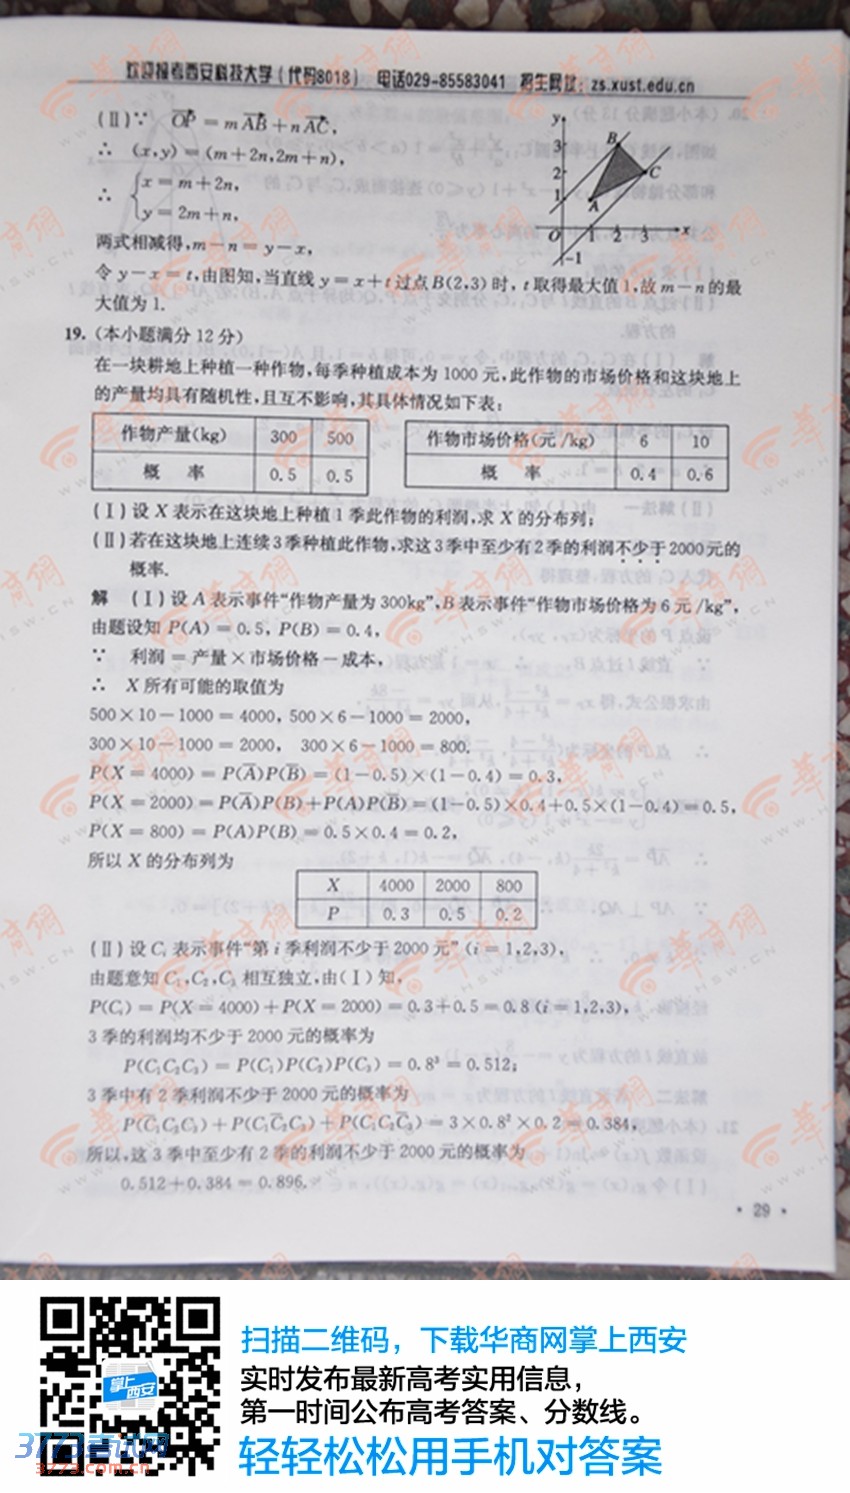 欢迎报考西安科技大学(代码8018) 电话029-85583041 招生网址:zs.xust.edu.cn
(Ⅱ)∵ OP = mAB + nAC,
∴ (x,y) = (m+2n,2m+n),
∴ { x = m+2n,
y = 2m+n,
两式相减得,m-n = y-x,
令 y-x = t,由图知,当直线 y = x+t 过点 B(2,3) 时, t 取得最大值 1,故 m-n 的最
大值为 1.
y
3
2
1
O
1 2 3
x
-1
A
B
C
19. (本小题满分 12 分)
在一块耕地上种植一种作物,每季种植成本为 1000 元,此作物的市场价格和这块地上
的产量均具有随机性,且互不影响,其具体情况如下表:
作物产量(kg) 300 500
概 率 0.5 0.5
作物市场价格(元/kg) 6 10
概 率 0.4 0.6
(Ⅰ)设 X 表示在这块地上种植 1 季此作物的利润,求 X 的分布列;
(Ⅱ)若在这块地上连续3季种植此作物,求这3季中至少有2季的利润不少于2000元的
概率.
解 (Ⅰ)设 A 表示事件“作物产量为 300kg”,B 表示事件“作物市场价格为 6 元/kg”,
由题设知 P(A) = 0.5, P(B) = 0.4,
∵ 利润 = 产量×市场价格-成本,
∴ X 所有可能的取值为
500×10-1000 = 4000, 500×6-1000 = 2000,
300×10-1000 = 2000, 300×6-1000 = 800.
P(X = 4000) = P(A̅)P(B̅) = (1-0.5)×(1-0.4) = 0.3,
P(X = 2000) = P(A̅)P(B)+P(A)P(B̅) = (1-0.5)×0.4+0.5×(1-0.4) = 0.5,
P(X = 800) = P(A)P(B) = 0.5×0.4 = 0.2,
所以 X 的分布列为
X 4000 2000 800
P 0.3 0.5 0.2
(Ⅱ)设 Cᵢ 表示事件“第 i 季利润不少于 2000 元” (i = 1,2,3),
由题意知 C₁,C₂,C₃ 相互独立,由(Ⅰ)知,
P(Cᵢ) = P(X = 4000)+P(X = 2000) = 0.3+0.5 = 0.8 (i = 1,2,3),
3 季的利润均不少于 2000 元的概率为
P(C₁C₂C₃) = P(C₁)P(C₂)P(C₃) = 0.8³ = 0.512;
3 季中有 2 季利润不少于 2000 元的概率为
P(C̅₁C₂C₃)+P(C₁C̅₂C₃)+P(C₁C₂C̅₃) = 3×0.8²×0.2 = 0.384,
所以,这 3 季中至少有 2 季的利润不少于 2000 元的概率为
0.512+0.384 = 0.896.
• 29 •
掌上西安
3773考试网
3773.com.cn
扫描二维码,下载华商网掌上西安
实时发布最新高考实用信息,
第一时间公布高考答案、分数线。
轻轻松松用手机对答案